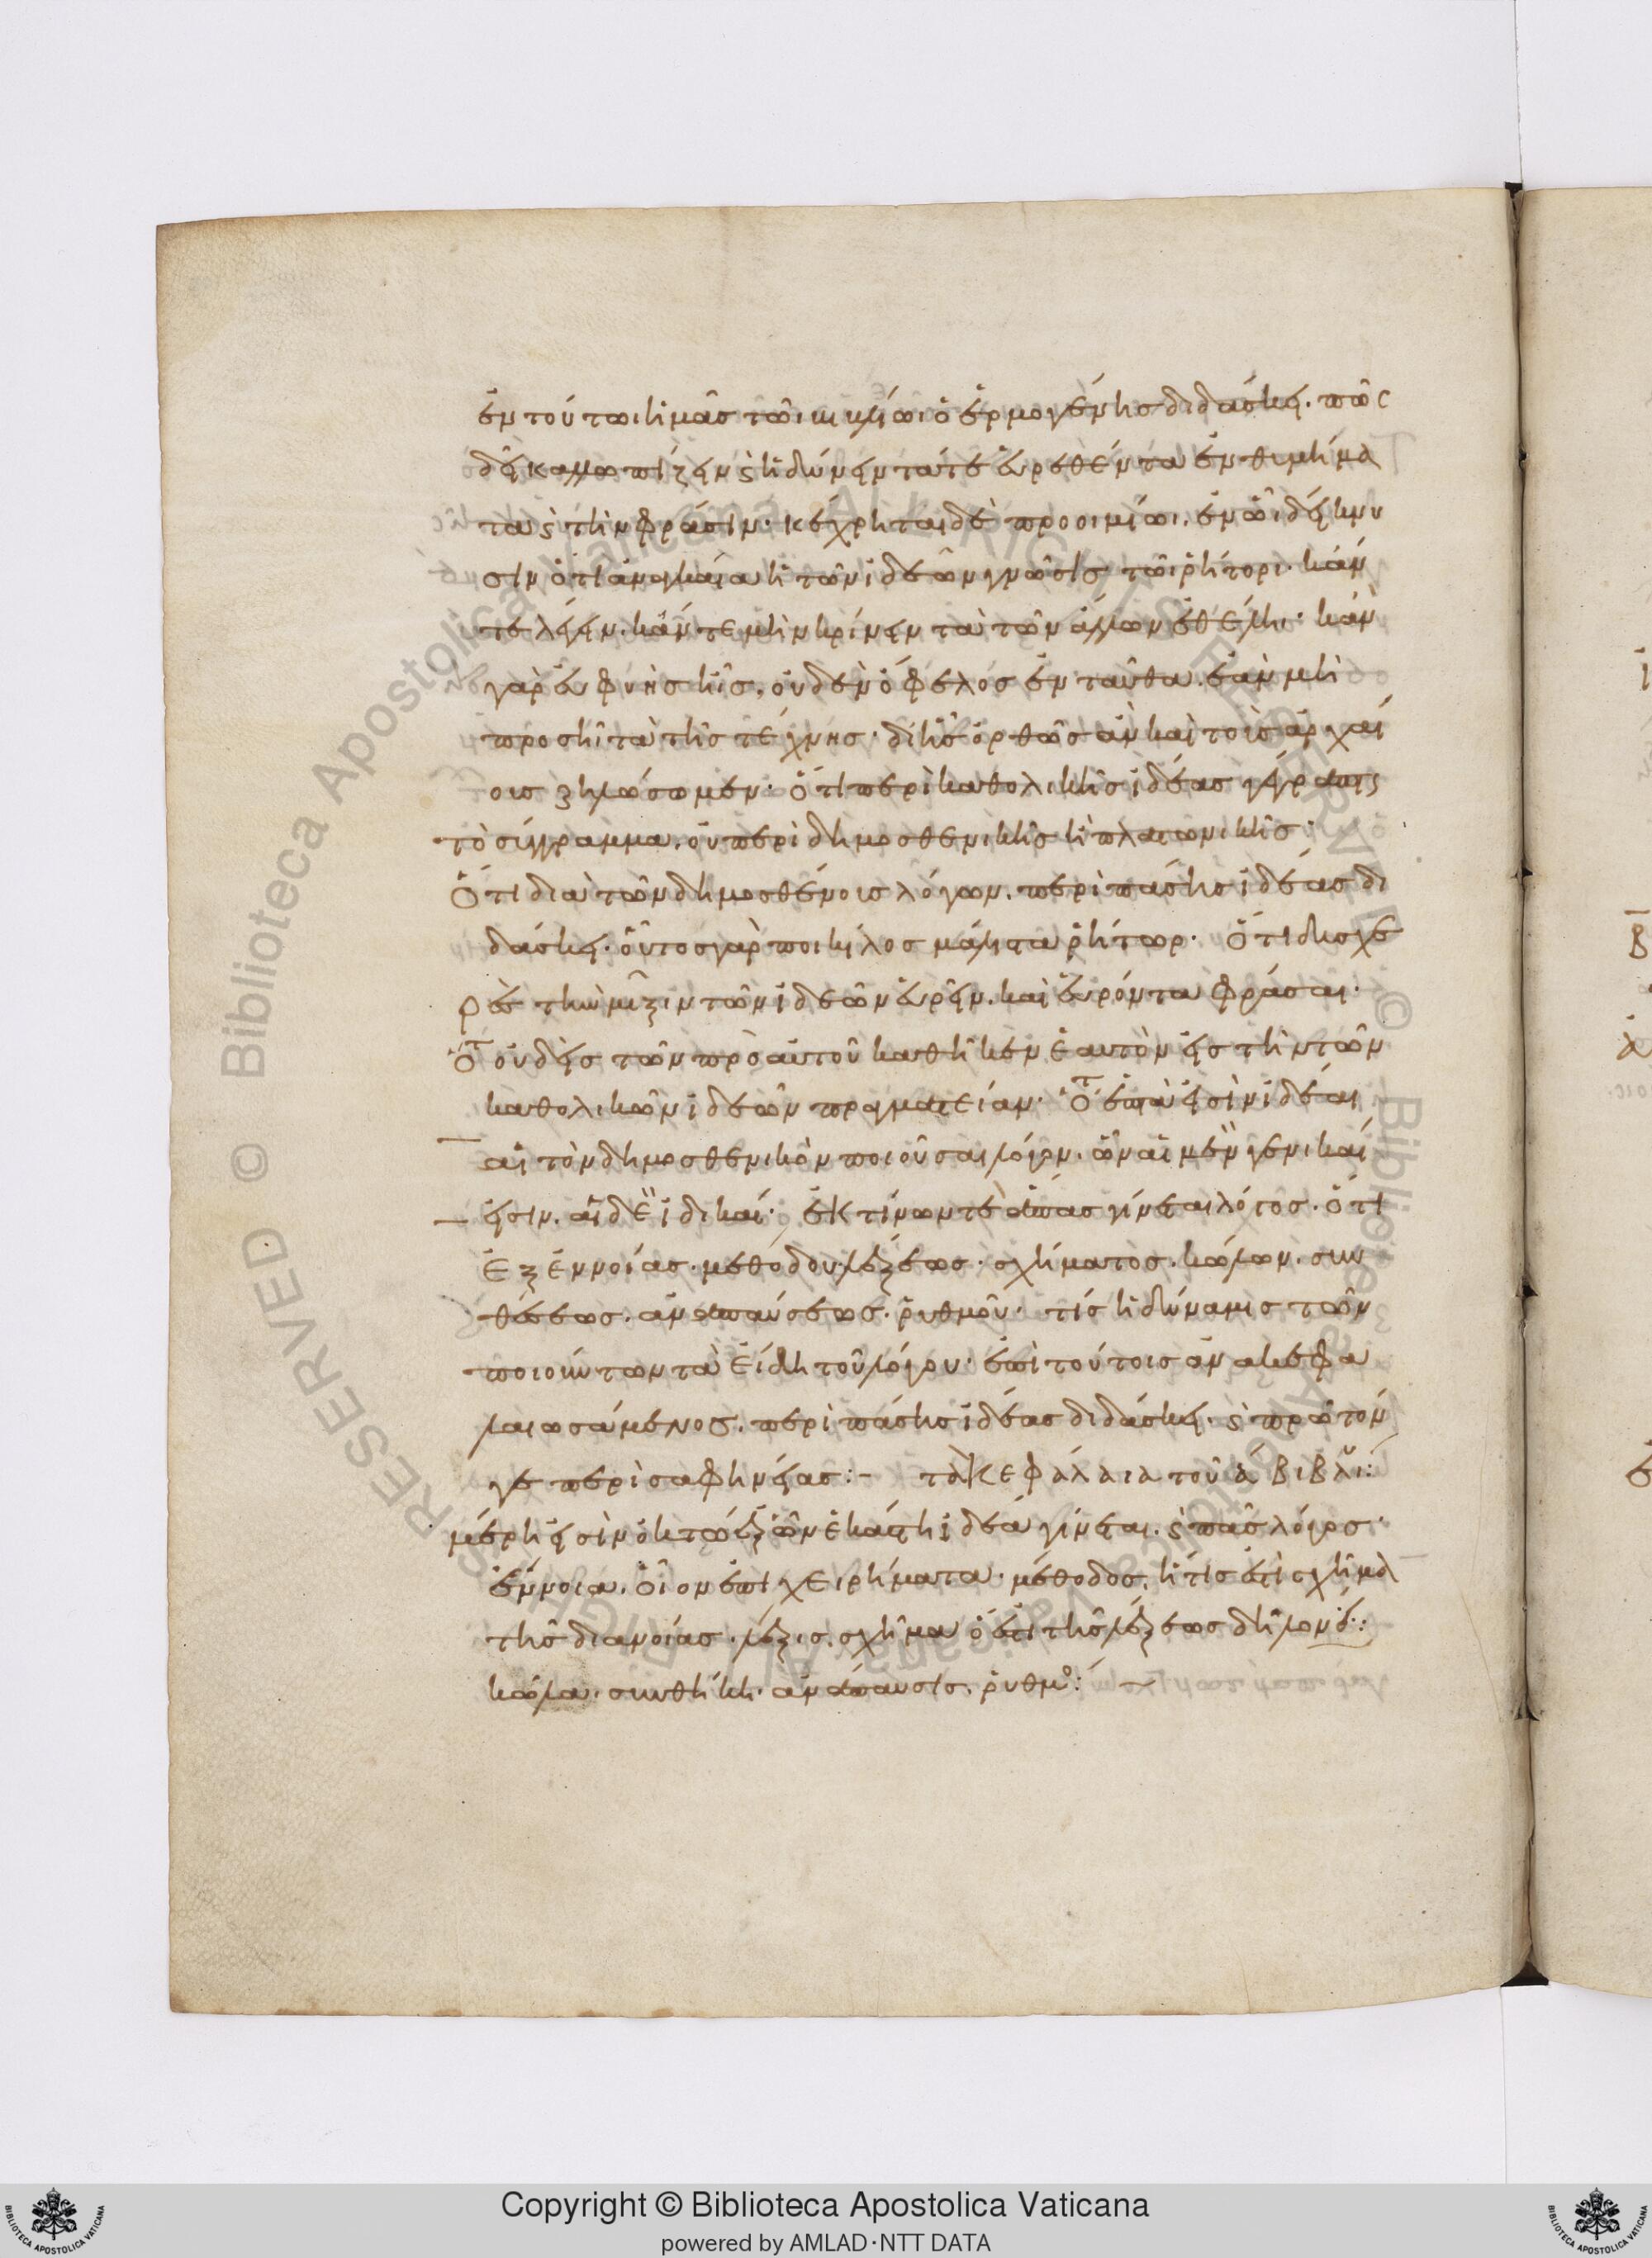 ἐν τούτωι ἡμᾶς τῶι βιβλίωι ὁ ἑρμογένης διδάσκει· πῶς
δεῖ καλλωπίζειν ϛ ἡδύνειν τά τε εὑρεθέντα ἐνθυμήμα
τα ϛ τὴν φράσιν· κέχρηται δὲ προοιμίωι, ἐν ὧι δείκνυ
σιν ὅτι ἀναγκαία ἡ τῶν ἰδεῶν γνῶσις τῶι ῥήτορι· κἄν
τε λέγειν, κἄν τε μὴν κρίνειν τὰ τῶν ἄλλων ἐθέληι· κἂν
γὰρ εὐφυὴς ἦις, οὐδὲν ὄφελος ἐνταῦθα, ἐὰν μὴ
προσῆι τὰ τῆς τέχνης· δι' ἧς ὀρθῶς ἂν καὶ τοὺς ἀρχαί
ους ζηλώσομεν· ὅτι περὶ καθολικῆς ἰδέας γέγραπται
τὸ σύγγραμμα, οὐ περὶ δημοσθενικῆς ἢ πλατωνικῆς·
Ὅτι διὰ τῶν δημοσθένους λόγων, περὶ πάσης ἰδέας δι
δάσκει· οὗτος γὰρ ποικίλος μάλιστα ῥήτωρ· Ὅτι δυσχε
ρὲς τὴν μῖξιν τῶν ἰδεῶν εὑρεῖν, καὶ εὑρόντα φράσαι·
Ὅτι οὐδεὶς τῶν πρὸ αὐτοῦ καθῆκεν ἑαυτὸν εἰς τὴν τῶν
καθολικῶν ἰδεῶν πραγματείαν· Ὅτι ἑπτὰ εἰσὶν ἰδέαι
αἱ τὸν δημοσθενικὸν ποιοῦσαι λόγον, ὧν αἱ μὲν γενικαί
εἰσιν, αἱ δὲ ἰδικαί· ἐκ τίνων τε ἅπας γίνεται λόγος· ὅτι
ἐξ ἐννοίας· μεθόδου· λέξεως· σχήματος· κώλων· συν
θέσεως· ἀναπαύσεως· ῥυθμοῦ· τίς ἡ δύναμις τῶν
ποιούντων τὰ εἴδη τοῦ λόγου· ἐπὶ τούτοις ἀνακεφα
λαιωσάμενος, περὶ πάσης ἰδέας διδάσκει· ϛ πρῶτόν
γε περὶ σαφηνείας:- τὰ κεφάλαια τοῦ α βιβλι:
μέρη εἰσὶν ὀκτώ ἐξ ὧν ἑκάστη ἰδέα γίνεται, ϛ πᾶς λόγος·
ἔννοια, οἷον ἐπιχειρήματα· μέθοδος, ἥτις ἐστὶ σχῆμα
τῆς διανοίας· λέξις, σχῆμα ὅ ἐστι τῆς λέξεως δηλονό:
κῶλα· συνθήκη· ἀνάπαυσις, ῥυθμο: